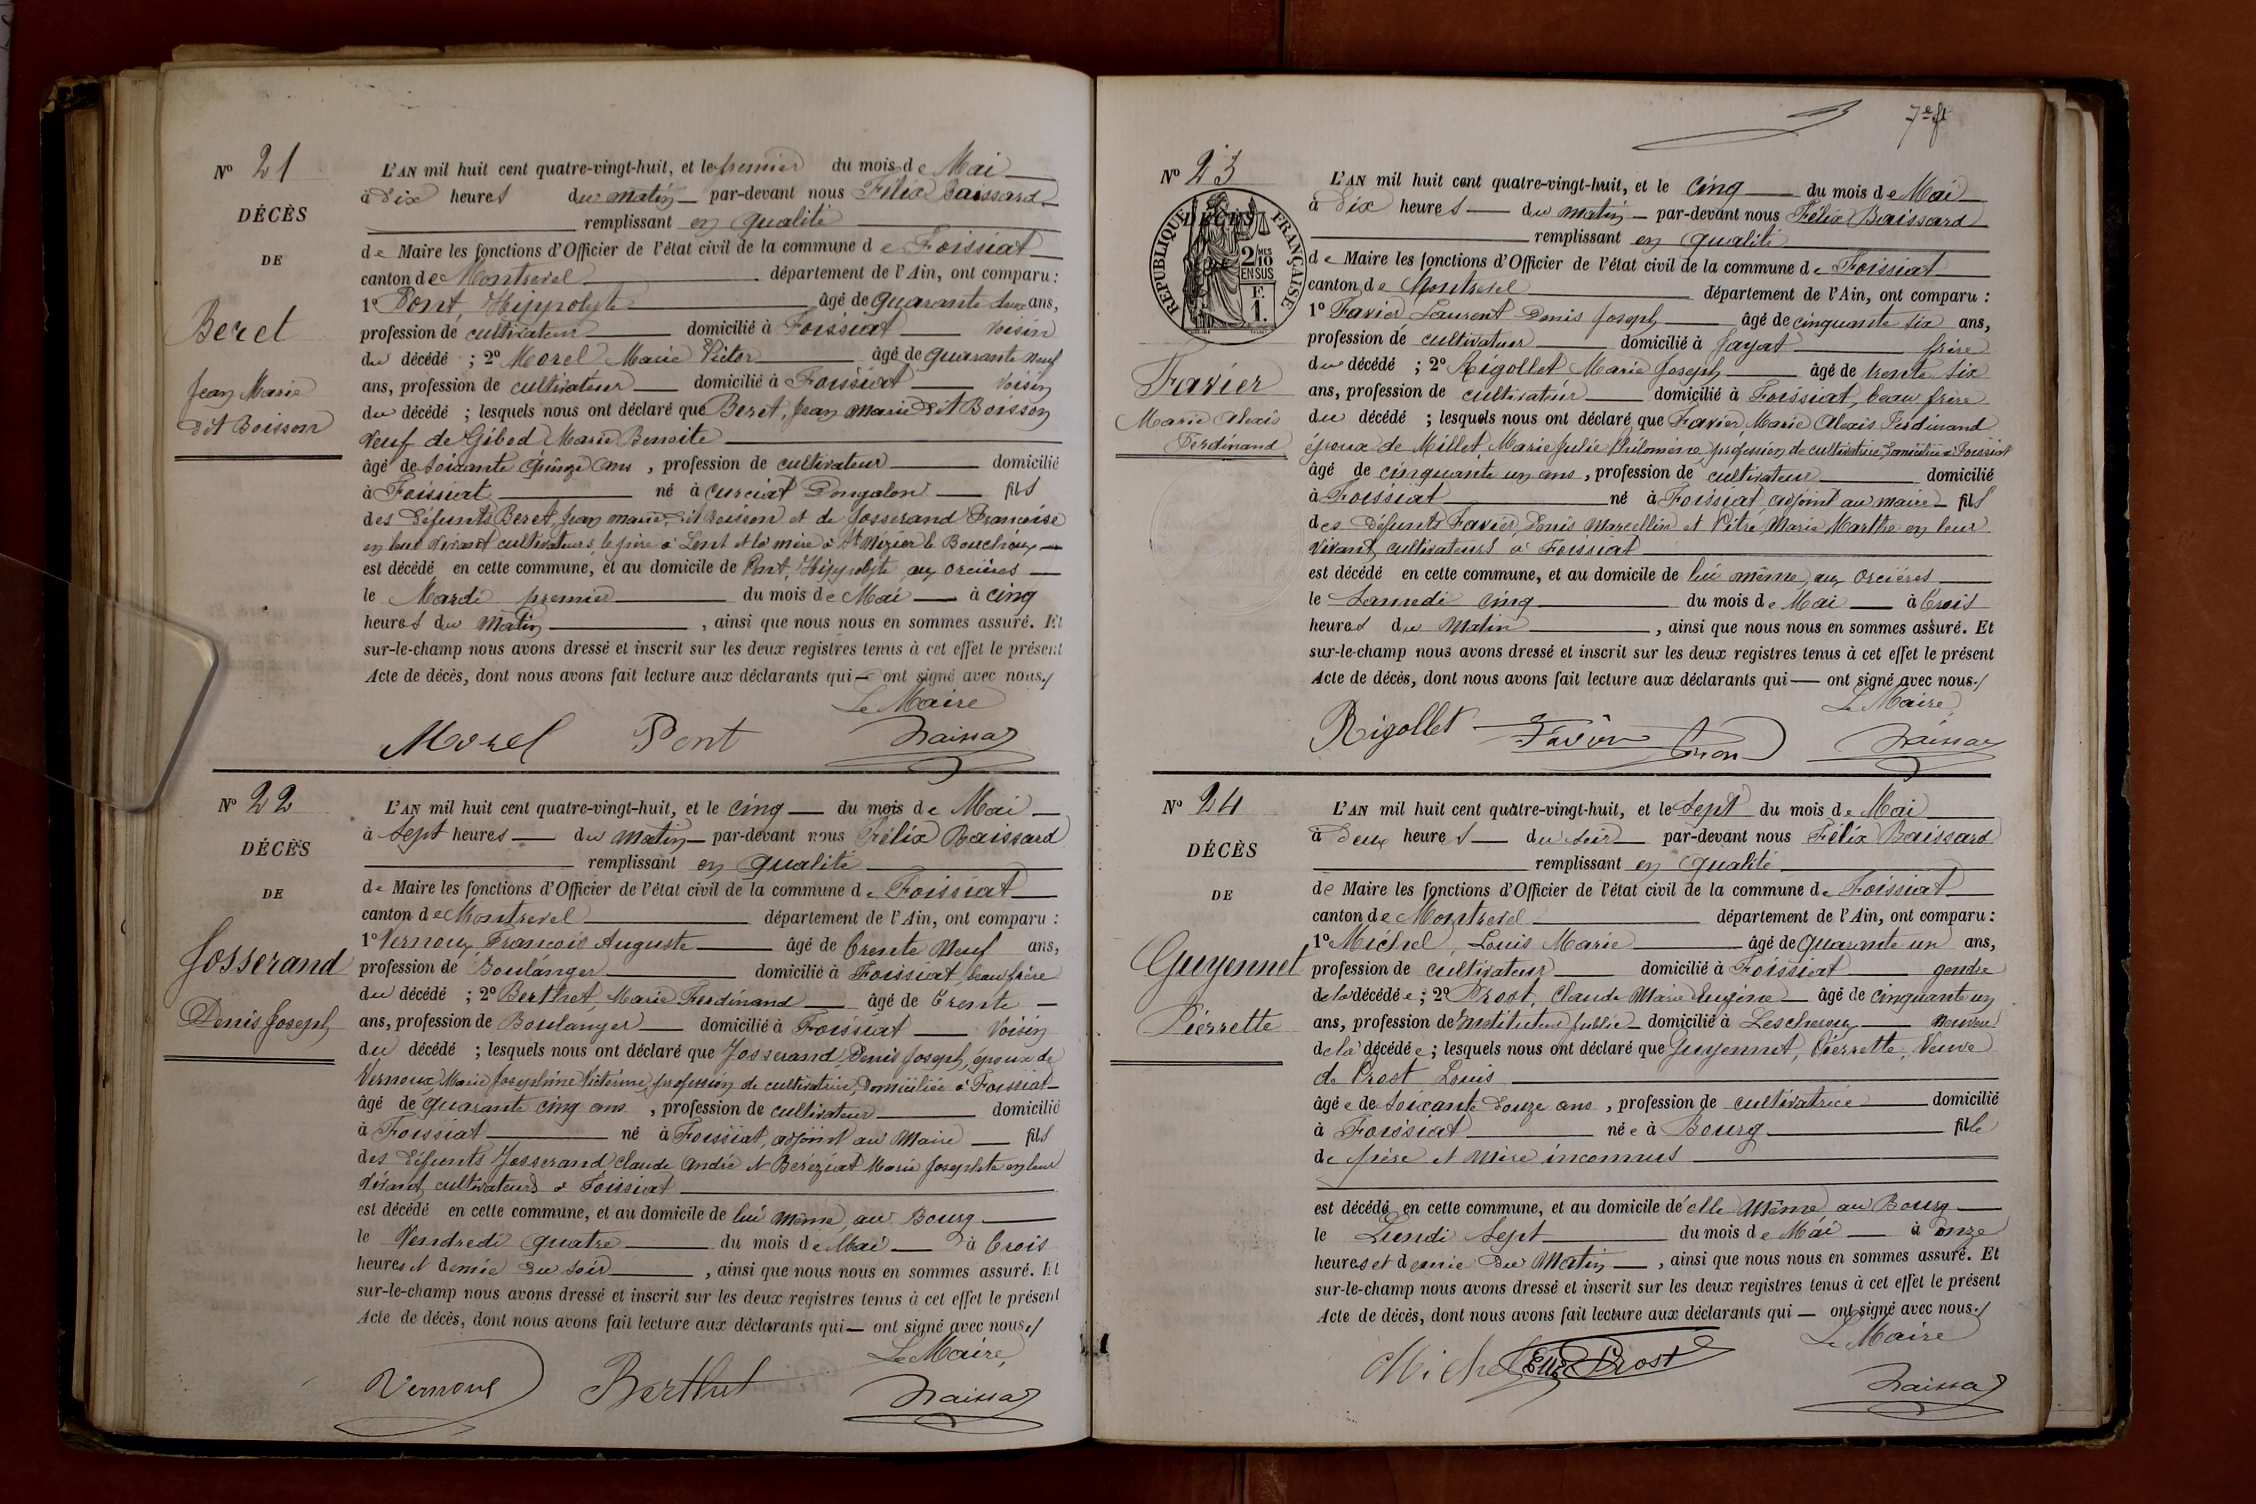 N° 21
DÉCÈS
DE
Beret
Jean Marie
dit Boisson
L'AN mil huit cent quatre-vingt-huit, et le premier du mois de Mai
à Dix heures du matin par-devant nous Félix Baissard
remplissant en qualité
de Maire les fonctions d'Officier de l'état civil de la commune de Foissiat
canton de Montrevel département de l'Ain, ont comparu :
1° Pont, Hippolyte âgé de quarante deux ans,
profession de cultivateur domicilié à Foissiat voisin
du décédé ; 2° Morel Marie Victor âgé de quarante neuf
ans, profession de cultivateur domicilié à Foissiat voisin
du décédé ; lesquels nous ont déclaré que Beret, Jean Marie dit Boisson
veuf de Gibod Marie Benoite
âgé de soixante quinze ans, profession de cultivateur domicilié
à Foissiat né à Curciat Dongalon fils
des défunts Beret, Jean marie, dit Boisson et de Josserand Françoise
en leur vivant cultivateurs, le père à Lent et la mère à St Nizier le Bouchoux
est décédé en cette commune, et au domicile de Pont, Hippolyte aux Orcières
le Mardi premier du mois de Mai à cinq
heures du Matin, ainsi que nous nous en sommes assuré. Et
sur-le-champ nous avons dressé et inscrit sur les deux registres tenus à cet effet le présent
Acte de décès, dont nous avons fait lecture aux déclarants qui — ont signé avec nous./
Le Maire
Morel Pont Baissard
N° 22
DÉCÈS
DE
Josserand
Denis Joseph
L'AN mil huit cent quatre-vingt-huit, et le cinq du mois de Mai
à sept heures du matin par-devant nous Félix Baissard
remplissant en qualité
de Maire les fonctions d'Officier de l'état civil de la commune de Foissiat
canton de Montrevel département de l'Ain, ont comparu :
1° Vernoux François Auguste âgé de trente neuf ans,
profession de Boulanger domicilié à Foissiat, beau frère
du décédé ; 2° Berthet, Marie Ferdinand âgé de trente
ans, profession de Boulanger domicilié à Foissiat voisin
du décédé ; lesquels nous ont déclaré que Josserand, Denis Joseph, époux de
Vernoux Marie Joséphine Victorine, profession de cultivatrice, Domiciliée à Foissiat
âgé de quarante cinq ans, profession de cultivateur domicilié
à Foissiat né à Foissiat, adjoint au Maire fils
des défunts Josserand Claude André et Béréziat Marie Josephte en leur
vivant cultivateurs à Foissiat
est décédé en cette commune, et au domicile de lui même, au Bourg
le Vendredi quatre du mois de Mai à trois
heures et demie du soir, ainsi que nous nous en sommes assuré. Et
sur-le-champ nous avons dressé et inscrit sur les deux registres tenus à cet effet le présent
Acte de décès, dont nous avons fait lecture aux déclarants qui — ont signé avec nous./
Le Maire,
Vernoux Berthet Baissard
7e ft
N° 23
DÉCÈS
RÉPUBLIQUE FRANÇAISE
2/10MES
EN SUS
F.
1.
Favier
Marie Alexis
Ferdinand
L'AN mil huit cent quatre-vingt-huit, et le cinq du mois de Mai
à Dix heures du matin par-devant nous Félix Baissard
remplissant en qualité
de Maire les fonctions d'Officier de l'état civil de la commune de Foissiat
canton de Montrevel département de l'Ain, ont comparu :
1° Favier Laurent Denis Joseph âgé de cinquante six ans,
profession de cultivateur domicilié à Jayat frère
du décédé ; 2° Rigollet Marie Joseph âgé de trente six
ans, profession de cultivateur domicilié à Foissiat, beau frère
du décédé ; lesquels nous ont déclaré que Favier, Marie Alexis Ferdinand
époux de Millet, Marie Julie Philomène, profession de cultivatrice, Domiciliée à Foissiat
âgé de cinquante un ans, profession de cultivateur domicilié
à Foissiat né à Foissiat, adjoint au maire fils
des défunts Favier, Denis Marcellin et Pitre, Marie Marthe en leur
vivant cultivateurs à Foissiat
est décédé en cette commune, et au domicile de lui même, aux Orcières
le Samedi cinq du mois de Mai à trois
heures du Matin, ainsi que nous nous en sommes assuré. Et
sur-le-champ nous avons dressé et inscrit sur les deux registres tenus à cet effet le présent
Acte de décès, dont nous avons fait lecture aux déclarants qui — ont signé avec nous./
Le Maire,
Rigollet Favier Baissard
N° 24
DÉCÈS
DE
Guyennet
Pierrette
L'AN mil huit cent quatre-vingt-huit, et le sept du mois de Mai
à Deux heures du soir par-devant nous Félix Baissard
remplissant en qualité
de Maire les fonctions d'Officier de l'état civil de la commune de Foissiat
canton de Montrevel département de l'Ain, ont comparu :
1° Michel, Louis Marie âgé de quarante un ans,
profession de cultivateur domicilié à Foissiat gendre
de la décédée ; 2° Prost, Claude Marie Eugène âgé de cinquante un
ans, profession de Instituteur public domicilié à Lescheroux neveu
de la décédée ; lesquels nous ont déclaré que Guyennet, Pierrette, Veuve
de Prost Louis
âgée de soixante douze ans, profession de cultivatrice domicilié
à Foissiat née à Bourg fille
de père et mère inconnus
est décédé en cette commune, et au domicile d'elle même au Bourg
le Lundi sept du mois de Mai à onze
heures et demie du Matin, ainsi que nous nous en sommes assuré. Et
sur-le-champ nous avons dressé et inscrit sur les deux registres tenus à cet effet le présent
Acte de décès, dont nous avons fait lecture aux déclarants qui — ont signé avec nous./
Le Maire
Michel Prost Baissard